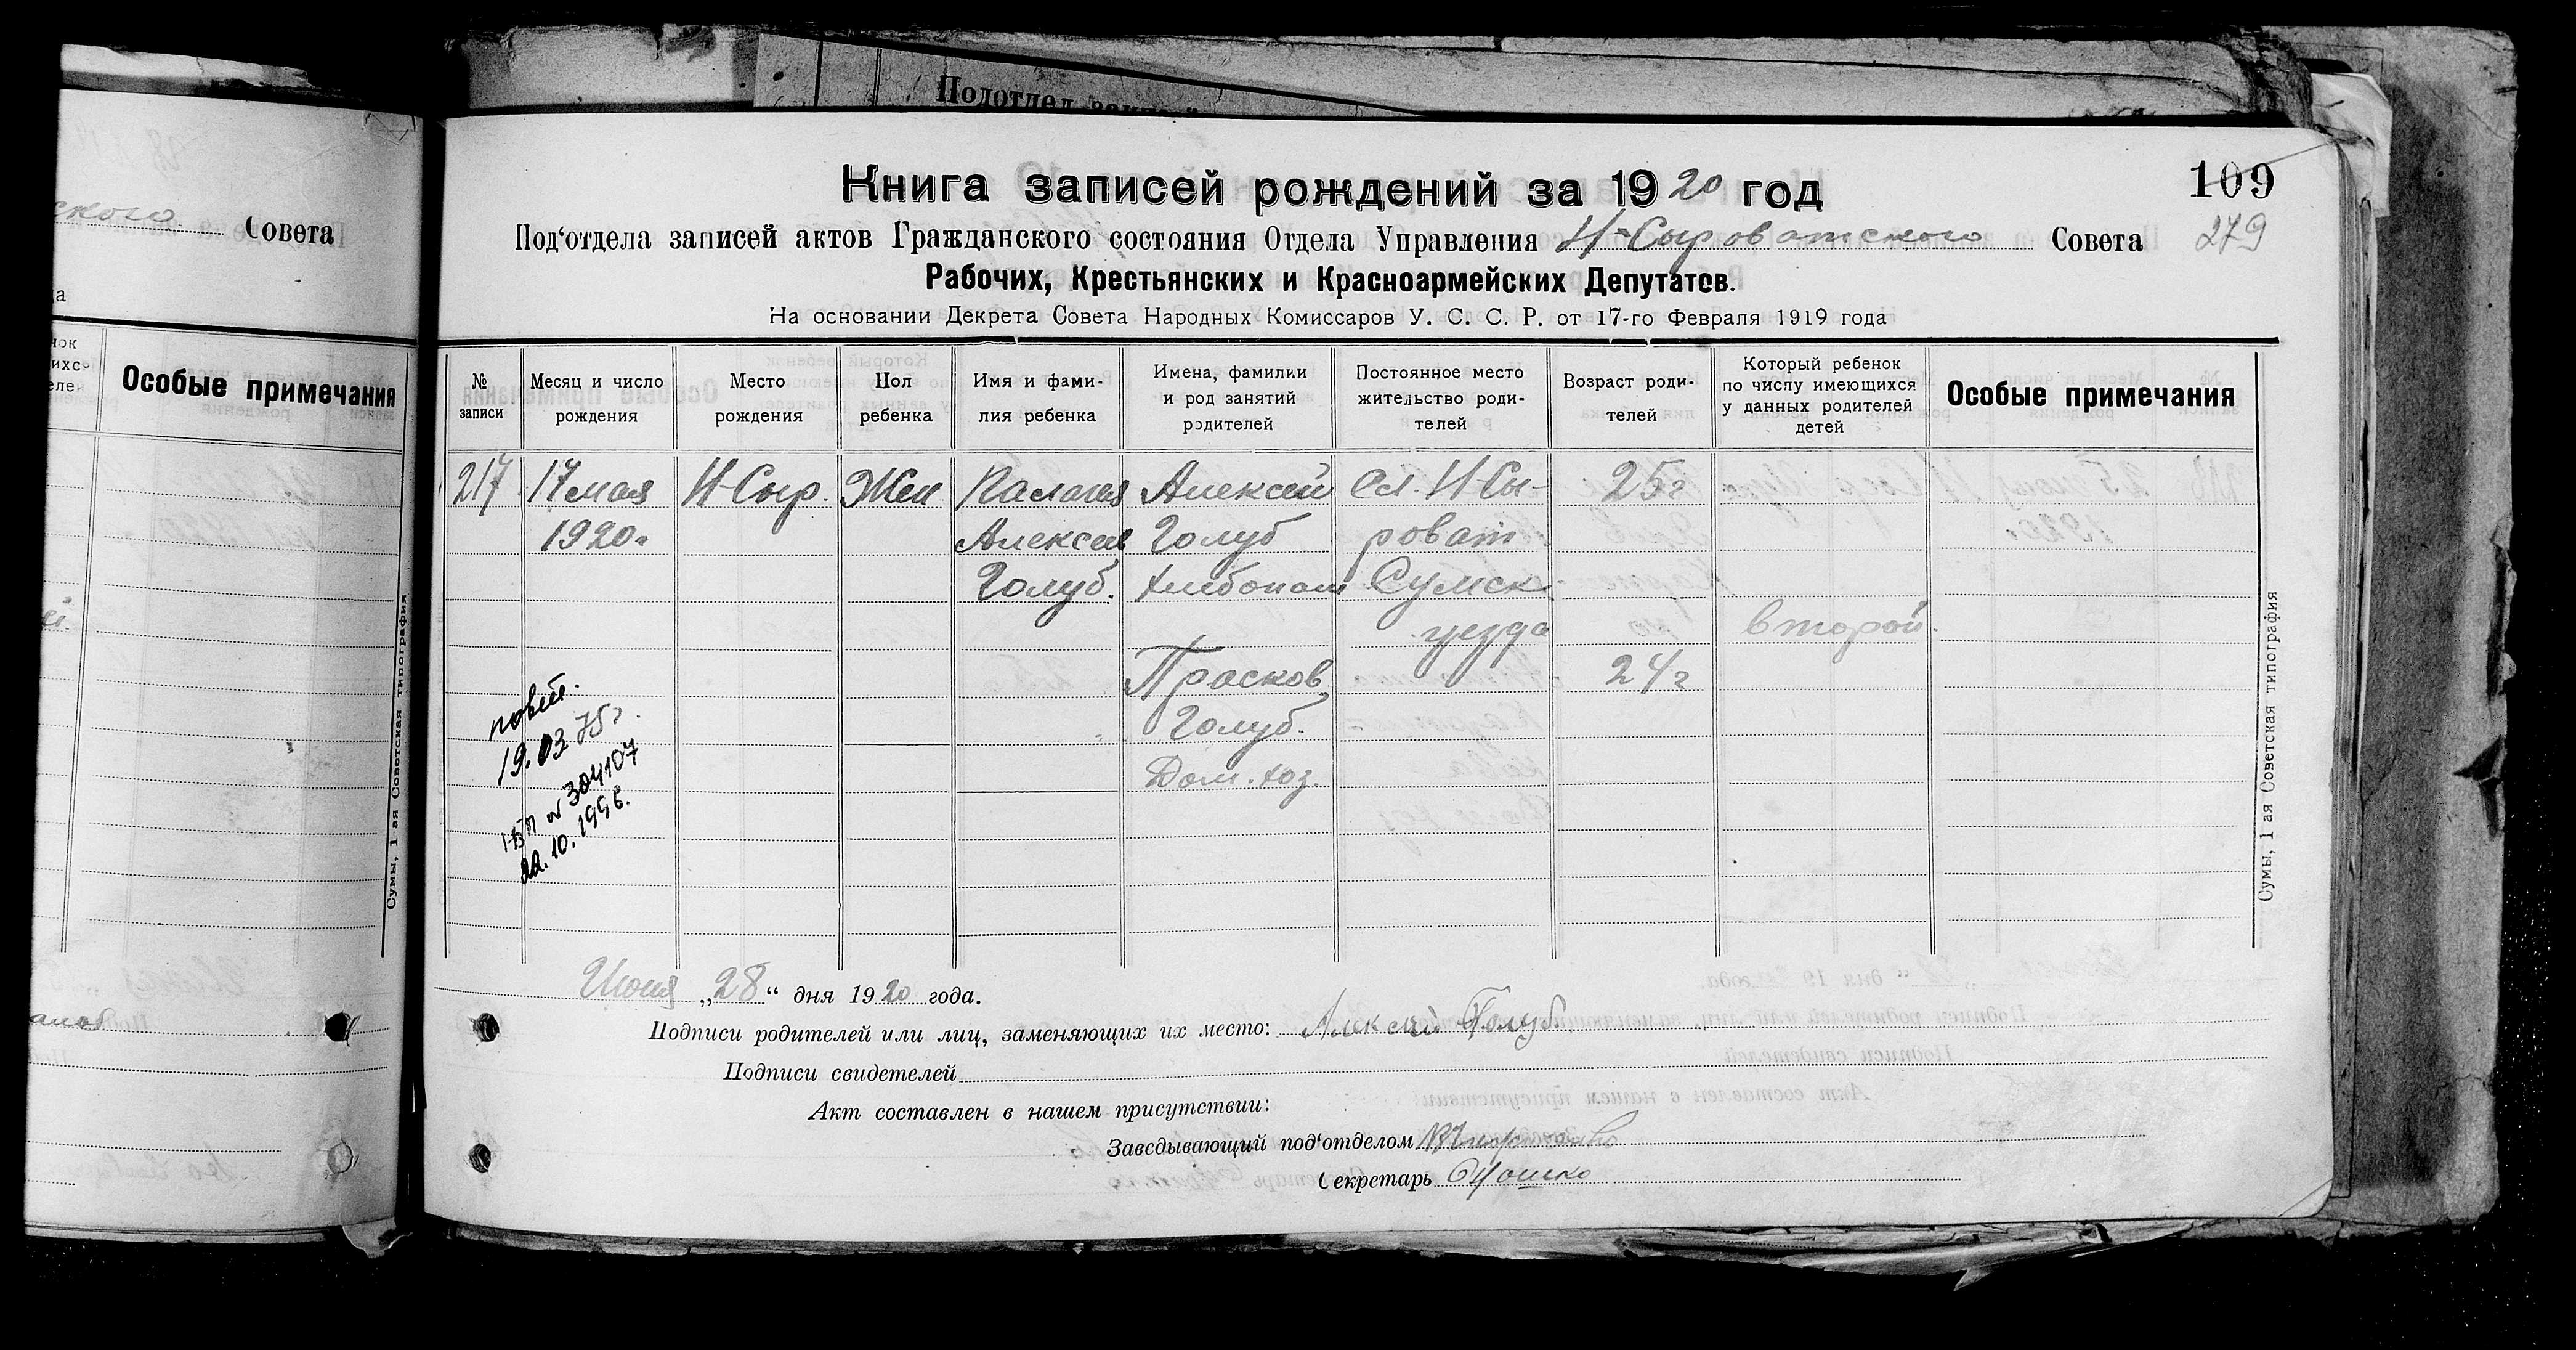 Подотдел
ского Совета
Особые примечания
Сумы, 1 ая Советская типография
Книга записей рождений за 1920 год
109
Под‘отдела записей актов Гражданского состояния Отдела Управления Н-Сыроватского Совета
279
Рабочих, Крестьянских и Красноармейских Депутатов.
На основании Декрета Совета Народных Комиссаров У. С. С. Р. от 17-го Февраля 1919 года
№ записи
Месяц и число рождения
Место рождения
Пол ребенка
Имя и фами-
лия ребенка
Имена, фамилии
и род занятий
родителей
Постоянное место
жительство роди-
телей
Возраст роди-
телей
Который ребенок
по числу имеющихся
у данных родителей
детей
Особые примечания
217 17 мая Н-Сыр. Жен Алексей Сл. Н-Сы- 25 г
1920 г Алексеев Голуб роват
Голуб. Сумск.
уезда второй
Прасков 24 г
Голуб.
Дом. хоз.
повт.
19.03.75г.
304107
22.10.1996.
Июня „28“ дня 1920 года.
Подписи родителей или лиц, заменяющих их место: Алексей Голуб
Подписи свидетелей
Акт составлен в нашем присутствии:
Заведывающий под‘отделом
Секретарь
Сумы, 1 ая Советская типография